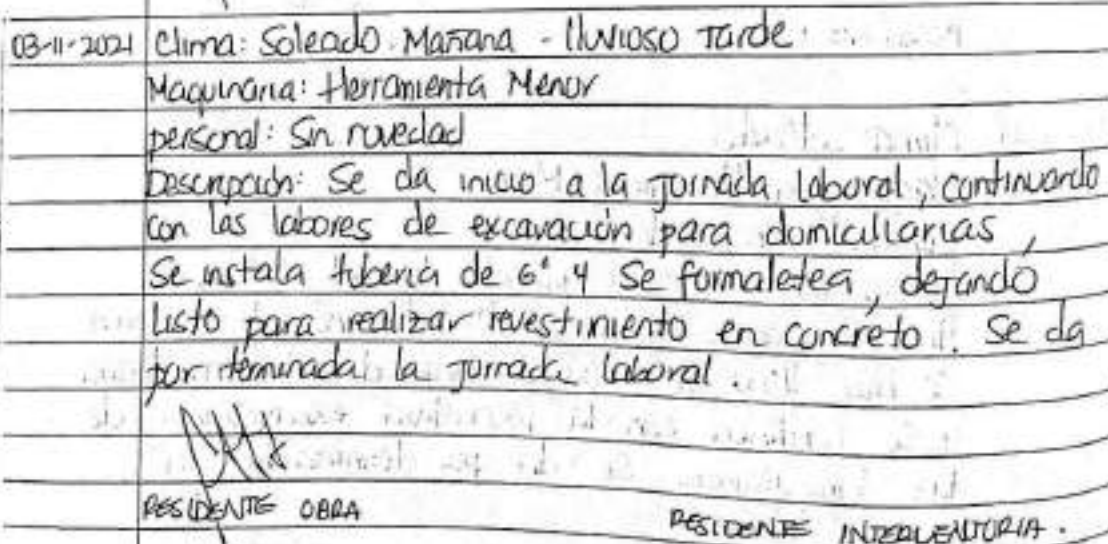 03-11-2021 Clima: Soleado Mañana - lluvioso Tarde
Maquinaria: Herramienta Menor
personal: Sin novedad
Descripción: Se da inicio a la jornada laboral, continuando
con las labores de excavación para domiciliarias,
Se instala tubería de 6" y Se formaletea, dejando
Listo para realizar revestimiento en concreto. Se da
por terminada la jornada laboral.
RESIDENTE OBRA RESIDENTE INTERVENTORIA.